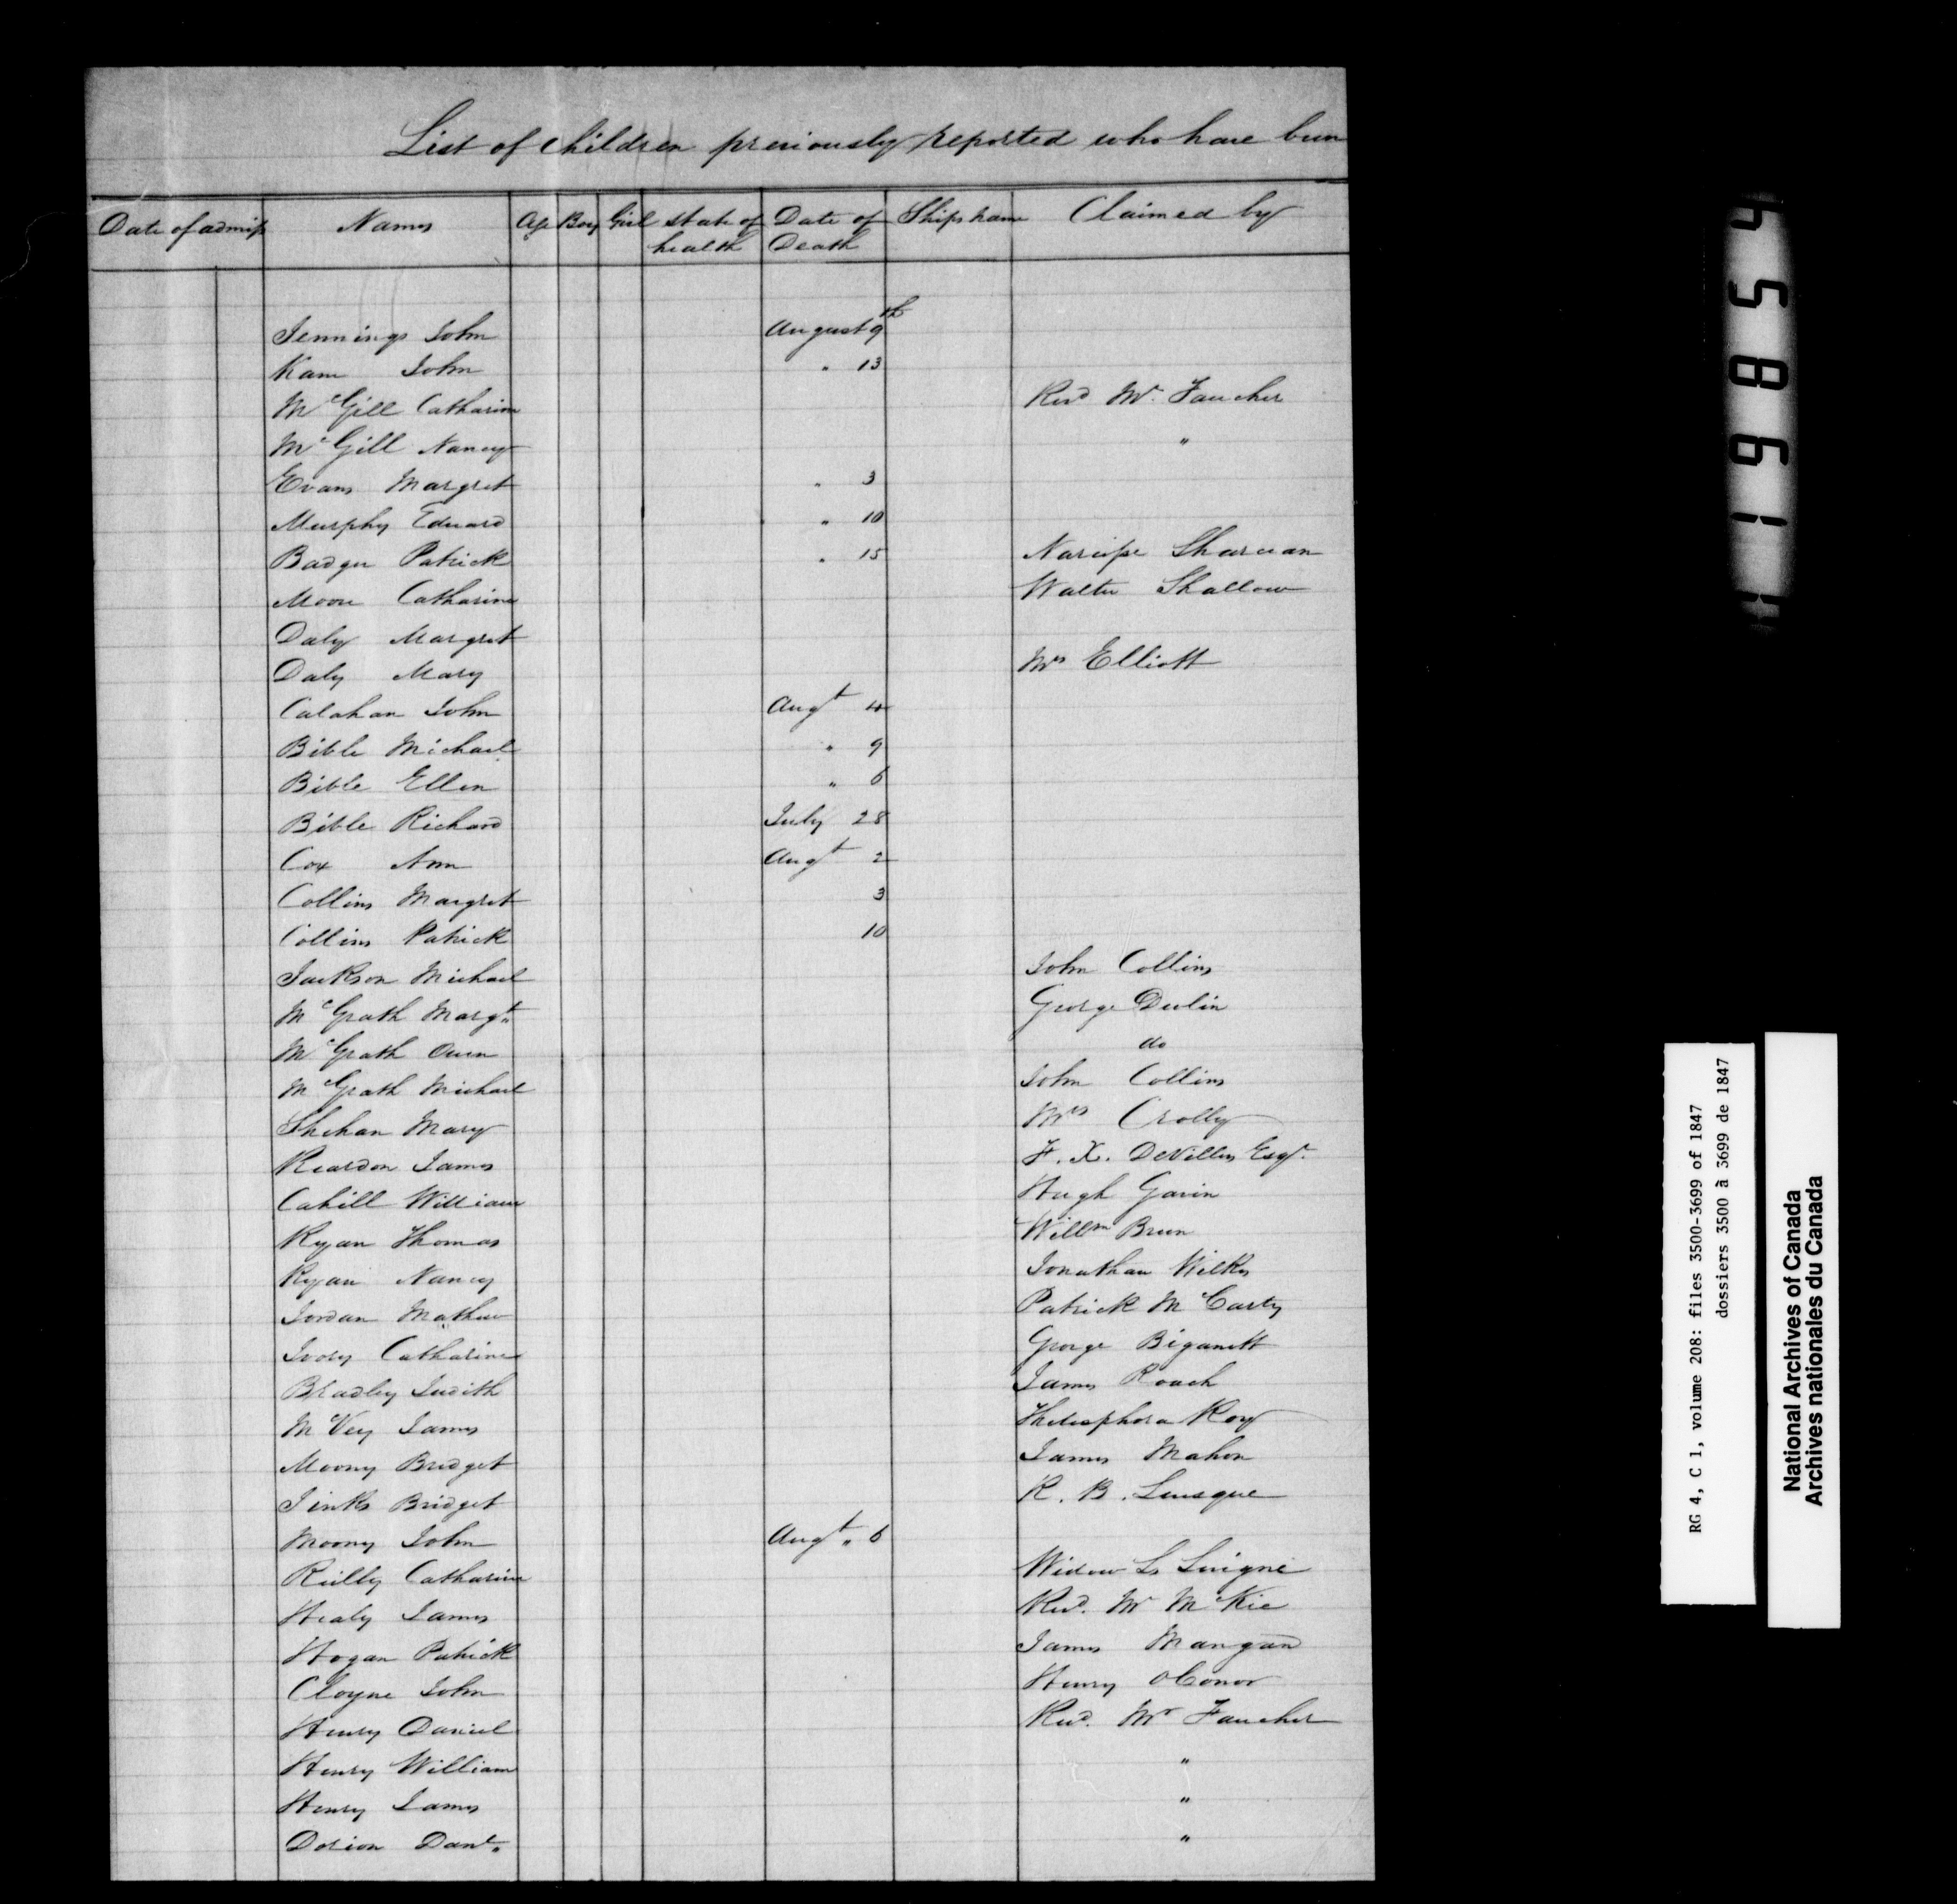 List of children previously reported who have been
Date of admiss Names Age Boy Girl state of health Date of Death Ships name Claimed by
Jennings John August 9th
Kane John " 13
McGill Catharine Revd Mr. Faucher
McGill Nancy "
Evans Margret " 3
Murphy Edward " 10
Badger Patrick " 15 Narcisse
Moore Catharine Walter Shallow
Daly Margret
Daly Mary Mrs Elliott
Calahan John Augt 4
Bible Michael " 9
Bible Ellen " 6
Bible Richard July 28
Cox Ann Augt 2
Collins Margret 3
Collins Patrick 10
Jackson Michael John Collins
McGrath Margt. George Devlin
McGrath Owen do
McGrath Michael John Collins
Shehan Mary Mrs Crolly
Reardon James F. X. Esqr.
Cahill William Hugh Gavin
Ryan Thomas Willm Breen
Ryan Nancy Jonathan Wilks
Jordan Mathew Patrick McCarty
Ivory Catharine George
Bradley Judith James Roach
McVey James Thelesphora Roy
Moony Bridget James Mahon
Jinks Bridget R. B.
Moony John Augt " 6
Reilly Catharine Widow
Healy James Revd. Mr McKie
Hogan Patrick James Mangan
Cloyne John Henry OConor
Henry Daniel Revd. Mr Faucher
Henry William "
Henry James "
Dorion Danl. "
4 5 8 6 1
RG 4, C 1, volume 208: files 3500-3699 of 1847
dossiers 3500 à 3699 de 1847
National Archives of Canada
Archives nationales du Canada